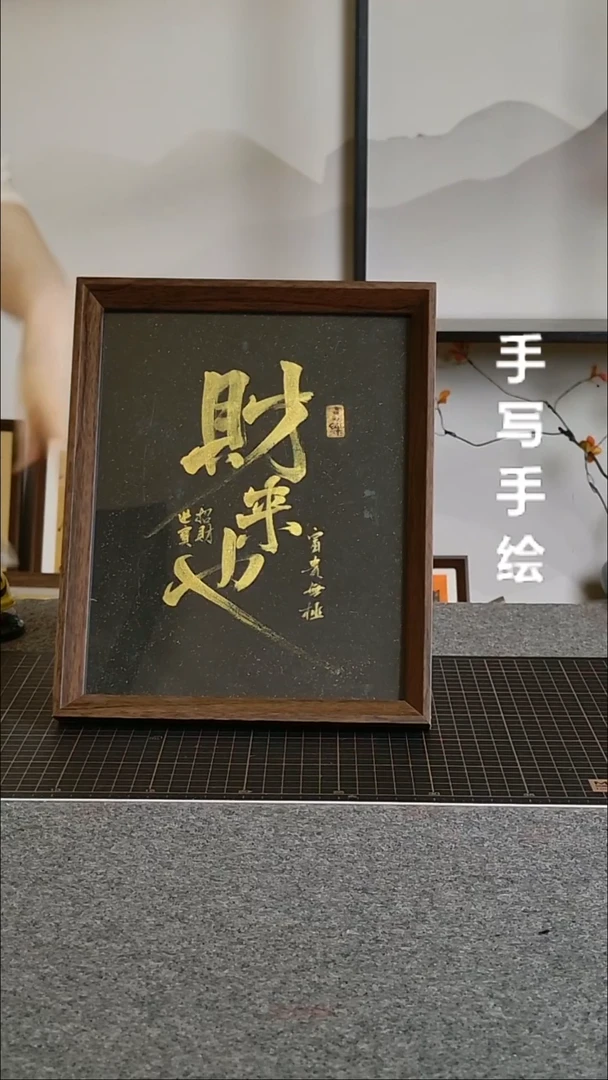 財來也
招財
進寶
富貴無極
手写手绘